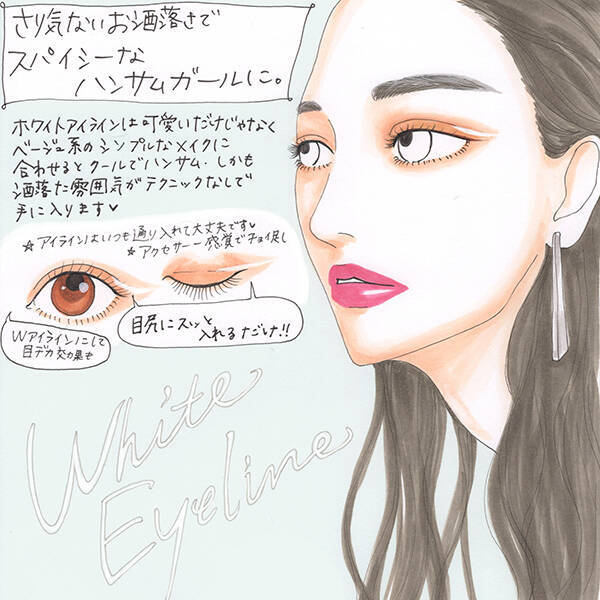 さり気ないお洒落さで
スパイシーな
ハンサムガールに。
ホワイトアイラインは可愛いだけじゃなく
ベージュ系のシンプルなメイクに
合わせるとクールでハンサム・しかも
洒落た雰囲気がテクニックなしで
手に入ります♥
☆アイラインはいつも通り入れて大丈夫です♥
★アクセサリー感覚でチョイ足し
Wアイラインにして
目デカ効果も
目尻にスッと
入れるだけ!!
White
Eyeline